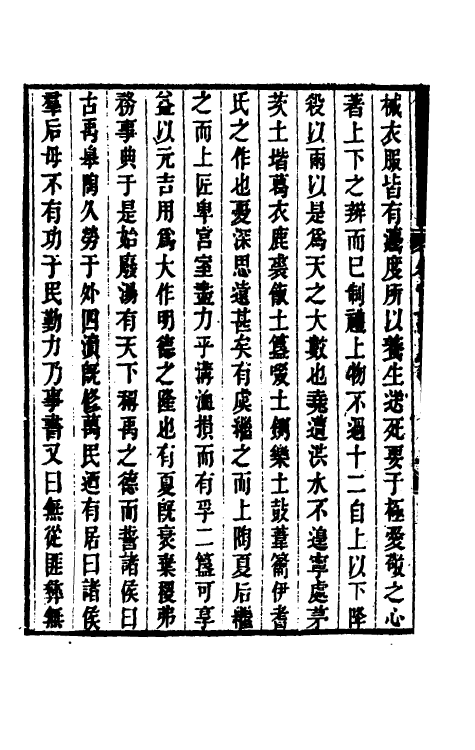 械衣服皆有灋度所以養生送死要于極愛敬之心
著上下之辨而已制禮上物不過十二自上以下降
殺以兩以是爲天之大數也堯遭洪水不遑寧處茅
茨土堦葛衣鹿裘飯土簋啜土鉶樂土鼓葦籥伊耆
氏之作也憂深思遠甚矣有虞繼之而上陶夏后繼
之而上匠卑宮室盡力乎溝洫損而有孚二簋可享
益以元吉用爲大作明德之隆也有夏旣衰棄稷弗
務事典于是始廢湯有天下稱禹之德而誓諸侯曰
古禹皋陶久勞于外四瀆旣修萬民迺有居曰諸侯
羣后毋不有功于民勤力乃事書又曰無從匪彝無